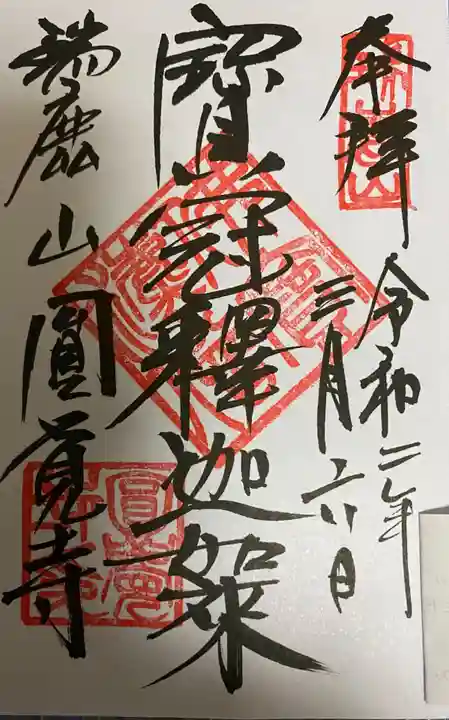 奉拝
令和二年
三月六日
寶冠釋迦如来
瑞鹿山圓覚寺